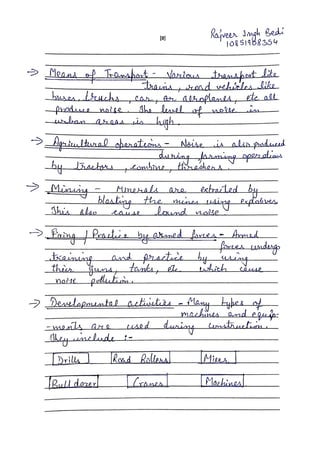 [8]
Rajveer Singh Bedi
10851988354
→ Means of Transport - Various transport like
trains, road vehicles like
buses, trucks, car, or aeroplanes, etc all
produce noise. The level of noise in
urban areas is high.
→ Agricultural operations - Noise is also produced
during farming operations
by tractors, combine, threshers.
→ Mining - Minerals are extracted by
blasting the mines using explosives
This also cause sound noise
→ Firing / Practice by armed forces - Armed
forces undergo
training and practice by using
their guns, tanks, etc. which cause
noise pollution.
→ Developmental activities - Many types of
machines and equip-
-ments are used during construction.
They include :-
Drills Road Rollers Mixes
Bull dozer Cranes Machines